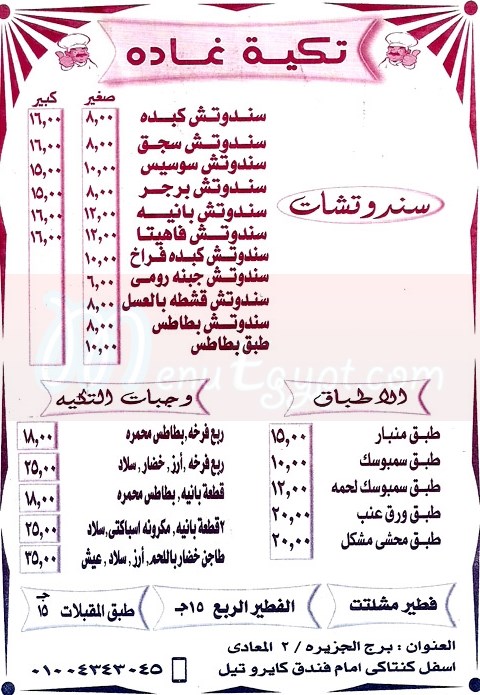 تكية غاده
صغير كبير
سندوتشات
سندوتش كبده ٨,٠٠ ١٦,٠٠
سندوتش سجق ٨,٠٠ ١٦,٠٠
سندوتش سوسيس ١٠,٠٠ ١٥,٠٠
سندوتش برجر ٨,٠٠ ١٥,٠٠
سندوتش بانيه ١٢,٠٠ ١٦,٠٠
سندوتش فاهيتا ١٢,٠٠ ١٦,٠٠
سندوتش كبده فراخ ١٠,٠٠
سندوتش جبنه رومى ٦,٠٠
سندوتش قشطه بالعسل ٨,٠٠
سندوتش بطاطس ٨,٠٠
طبق بطاطس ١٠,٠٠
MenuEgypt.com
الاطباق
طبق منبار ١٥,٠٠
طبق سمبوسك ١٠,٠٠
طبق سمبوسك لحمه ١٢,٠٠
طبق ورق عنب ٢٠,٠٠
طبق محشى مشكل ٢٠,٠٠
وجبات التكيه
ربع فرخه, بطاطس محمره ١٨,٠٠
ربع فرخه, أرز, خضار, سلاد ٢٥,٠٠
قطعة بانيه, بطاطس محمره ١٨,٠٠
٢قطعة بانيه, مكرونه اسباكتى, سلاد ٢٥,٠٠
طاجن خضار باللحم, أرز, سلاد, عيش ٣٥,٠٠
فطير مشلتت
الفطير الربع ١٥جـ
طبق المقبلات ١٥ جـ
العنوان : برج الجزيره / ٢ المعادى
اسفل كنتاكى امام فندق كايرو تيل
٠١٠٠٤٣٤٣٠٤٥